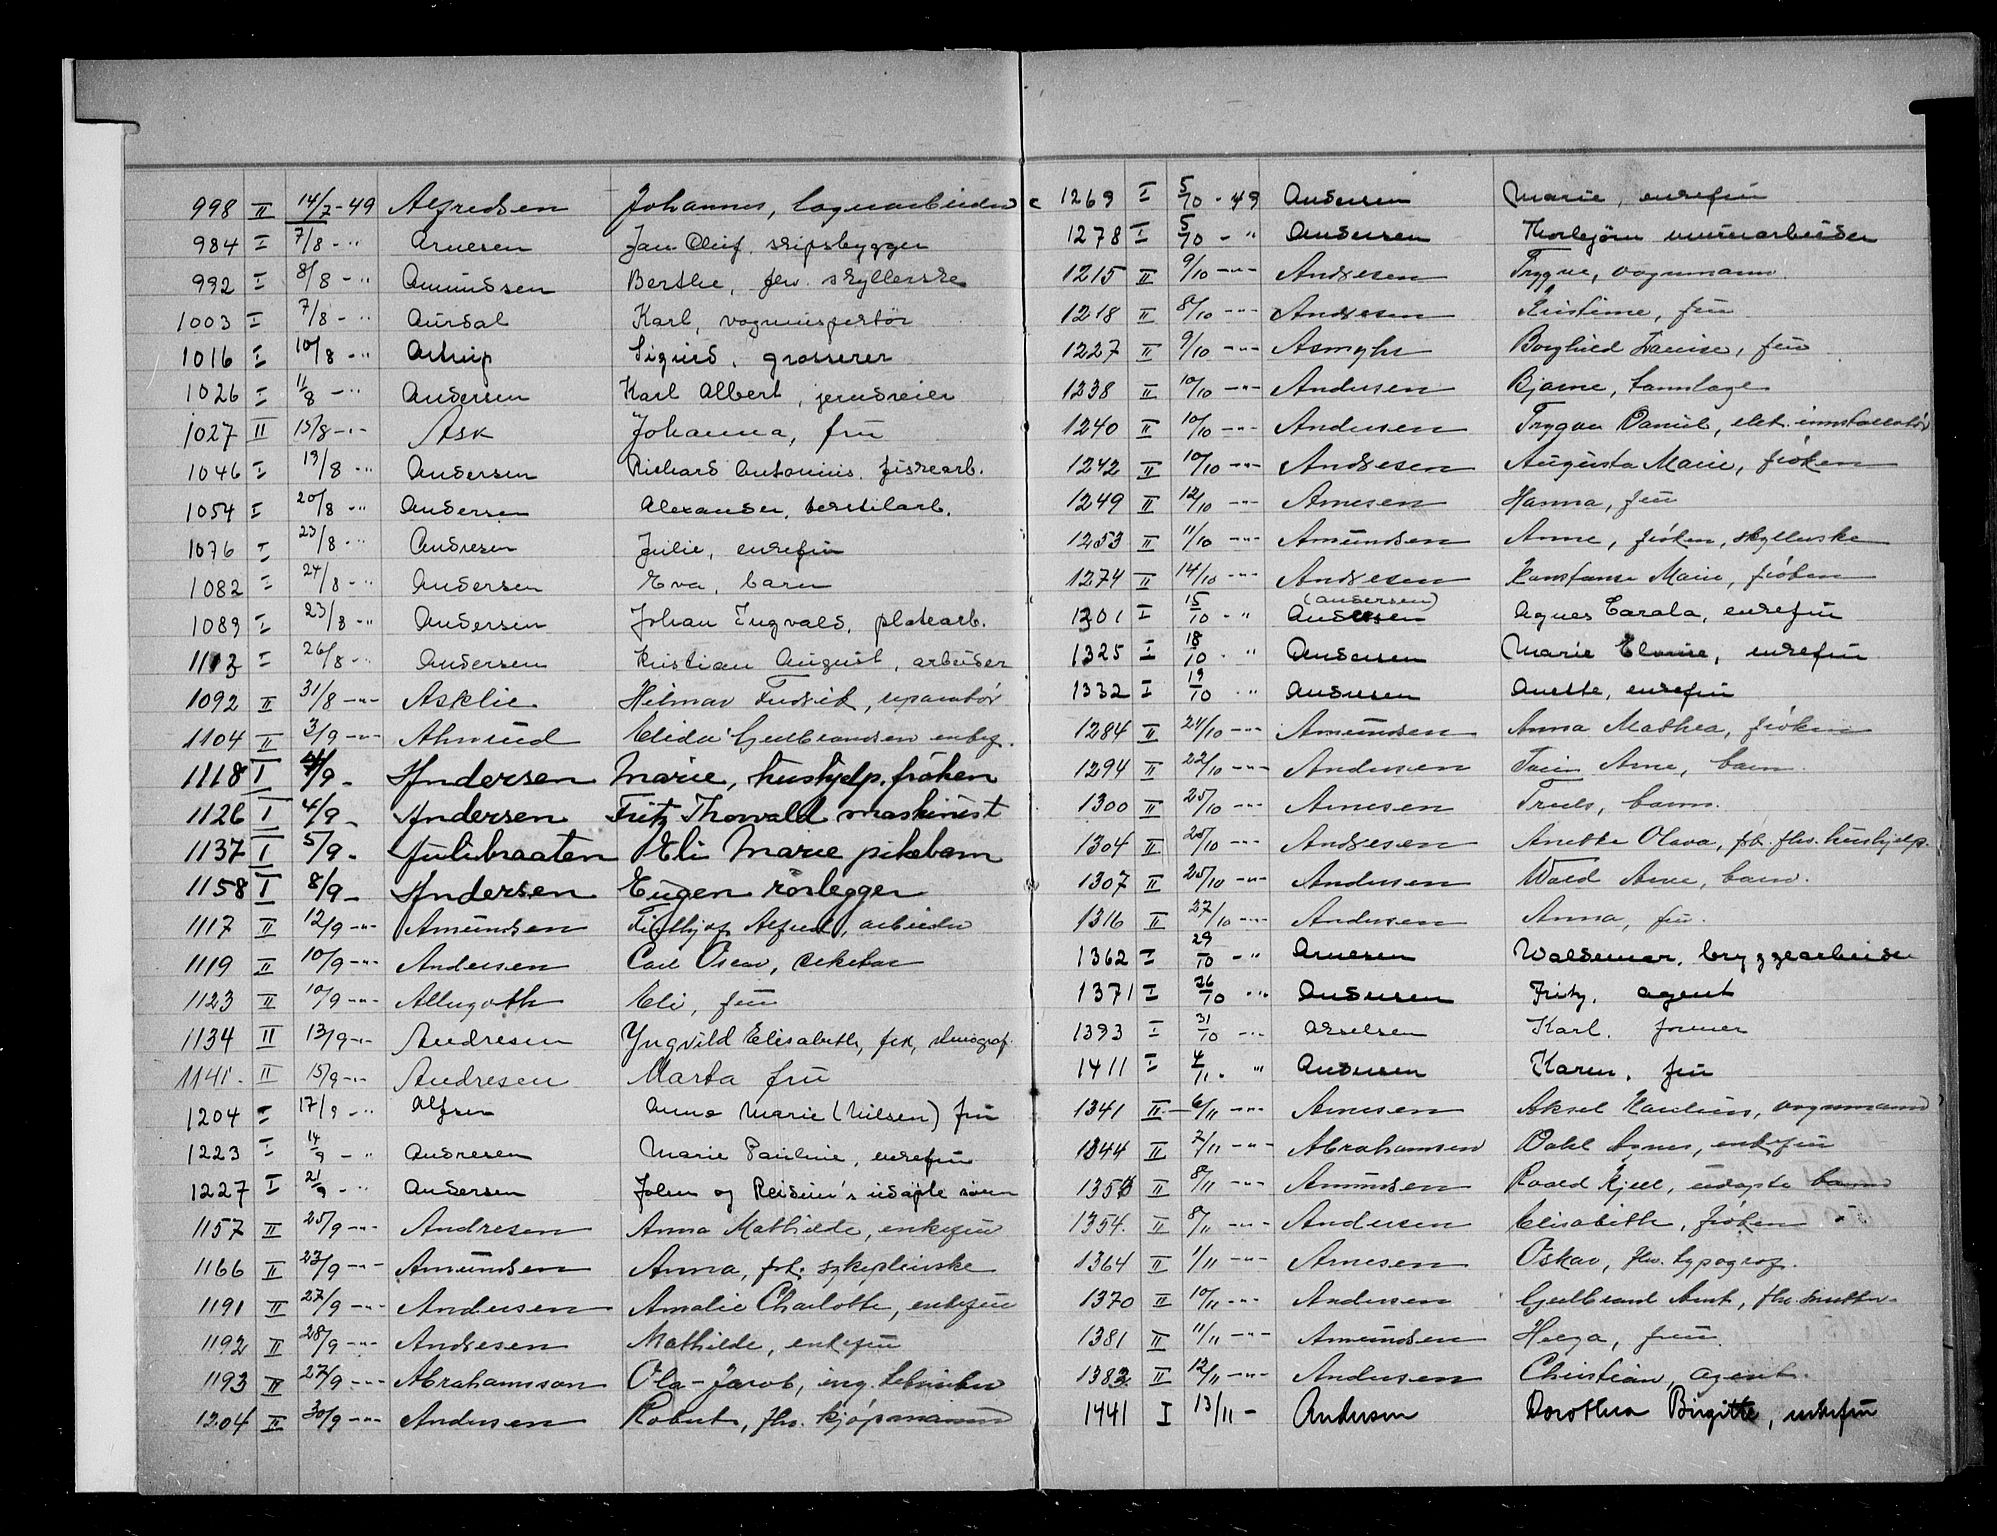 998 II 14/7-49 Alfredsen Johannes, lagerarbeider
984 I 7/8 - " Arnesen Jan Oluf, skipsbygger
992 I 8/8 - " Amundsen Berthe, fhv. skyllerske
1003 I 7/8 - " Aursal Karl, vogninspektør
1016 I 10/8 - " Astrup Sigurd, grosserer
1026 I 11/8 - " Andersen Karl Albert, jerndreier
1027 II 15/8 - " - Ask Johanna, fru
1046 I 19/8 - " Andersen Richard Antonius, fiskearb.
1054 I 20/8 - " Andersen Alexander, tekstilarb.
1076 I 23/8 - " Andresen Julie, enkefru
1082 I 24/8 - " Andersen Eva, barn
1089 I 23/8 - " Andersen Johan Ingvald, platearb.
1113 I 26/8 - " Andersen Kristian August, arbeider
1092 II 31/8 - " - Asklie Hilmar Fredrik, reparatør
1104 II 3/9 - " - Almrud Elida Gulbrandsen enkef.
1118 I 4/9 - Andersen Marie, hushjelp, frøken
1126 I 4/9 - Andersen Fritz Thorvald maskinist
1137 I 5/9 - Julibraaten Eli Marie pikebarn
1158 I 8/9 - Andersen Eugen rørlegger
1117 II 12/9 - " - Amundsen Fridtjof Alfred, arbeider
1119 II 10/9 - " - Andersen Carl Oscar,
1123 II 10/9 - " - Allugoth Eli, fru
1134 II 13/9 - " - Andresen Yngvild Elisabeth, frk, stenograf.
1141. II 15/9 - " - Andresen Marta fru
1204 I 17/9 - " Alfsen Anna Marie (Nilsen) fru
1223 I 14/9 - " Andresen Marie Pauline, enkefru
1227 I 21/9 - " Andersen John og Reidun's udøpte sønn
1157 II 25/9 - " - Andresen Anna Mathilde, enkefru
1166 II 23/9 - " - Amundsen Anna, frk. sykepleierske
1191 II 27/9 - " - Andersen Amalie Charlotte, enkefru
1192 II 28/9 - " - Andresen Mathilde, enkefru
1193 II 27/9 - " - Abrahamson Ola-Jacob, ing.
1204 II 30/9 - " - Andersen Robert, fhv. kjøpmann
1269 I 5/10 - 49 Andersen Marie, enkefru
1278 I 5/10 - " Andersen Thorbjørn murerarbeider
1215 II 9/10 - " - Andresen Trygve, vognmann
1218 II 8/10 - " - Andresen Kristine, fru
1227 II 9/10 - " - Asmyhr Borghild Louise, fru
1238 II 10/10 - " - Andersen Bjarne, tannlege
1240 II 10/10 - " - Andersen Trygve Daniel, elek. innstallatør
1242 II 10/10 - " - Andresen Augusta Marie, frøken
1249 II 12/10 - " - Arnesen Hanna, fru
1253 II 11/10 - " - Amundsen Anne, frøken, skyllerske
1274 II 14/10 - " - Andresen Konstanse Marie, frøken
1301 I 15/10 - " (Andersen) Andresen Agnes Carala, enkefru
1325 I 18/10 - " Andersen Marie Elonie, enkefru
1332 I 19/10 - " Andresen Anette, enkefru
1284 II 21/10 - " - Amundsen Anna Mathea, frøken
1294 II 22/10 - " - Andersen Arne, barn
1300 II 25/10 - " - Arnesen Truls, barn.
1304 II 25/10 - " - Andresen Anette Olava, frk. fhv. hushjelp.
1307 II 25/10 - " - Andersen Wold Arne, barn.
1316 II 27/10 - " - Andersen Anna, fru.
1362 I 29/10 - " Arnesen Waldemar, bryggearbeider
1371 I 26/10 - " Andersen Fritz, agent
1393 I 31/10 - " Akselsen Karl, former
1411 I 4/11 - " Andersen Karen, fru
1341 II - 6/11 - " - Arnesen Aksel Paulius, vognmann
1344 II 7/11 - " - Abrahamsen Dahl Agnes, enkefru
1353 II 8/11 - " - Amundsen Roald Kjell, udøpte barn
1354. II 8/11 - " - Andersen Elisabeth, frøken
1364 II 1/11 - " - Arnesen Oskar, fhv. typograf.
1370 II 10/11 - " - Andersen Gulbrand Arnt, fhv. snekker
1381 II 11/11 - " - Amundsen Helga, fru.
1383. II 12/11 - " - Andersen Christian, agent.
1441 I 13/11 - Andersen Dorothea Birgitte, enkefru